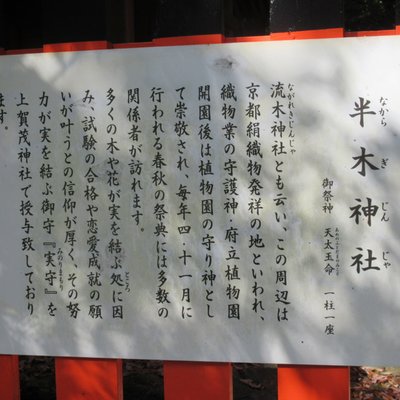 半木神社
なからぎじんじゃ
御祭神 天太玉命 一柱一座
あめのふとたまのみこと
流木神社とも云い、この周辺は
ながれきじんじゃ
京都絹織物発祥の地といわれ、
織物業の守護神・府立植物園
開園後は植物園の守り神とし
て崇敬され、毎年四・十一月に
行われる春秋の祭典には多数の
関係者が訪れます。
多くの木や花が実を結ぶ処に因
ところ
み、試験の合格や恋愛成就の願
いが叶うとの信仰が厚く、その努
力が実を結ぶ御守『実守』を
みのりまもり
上賀茂神社で授与致しており
ます。